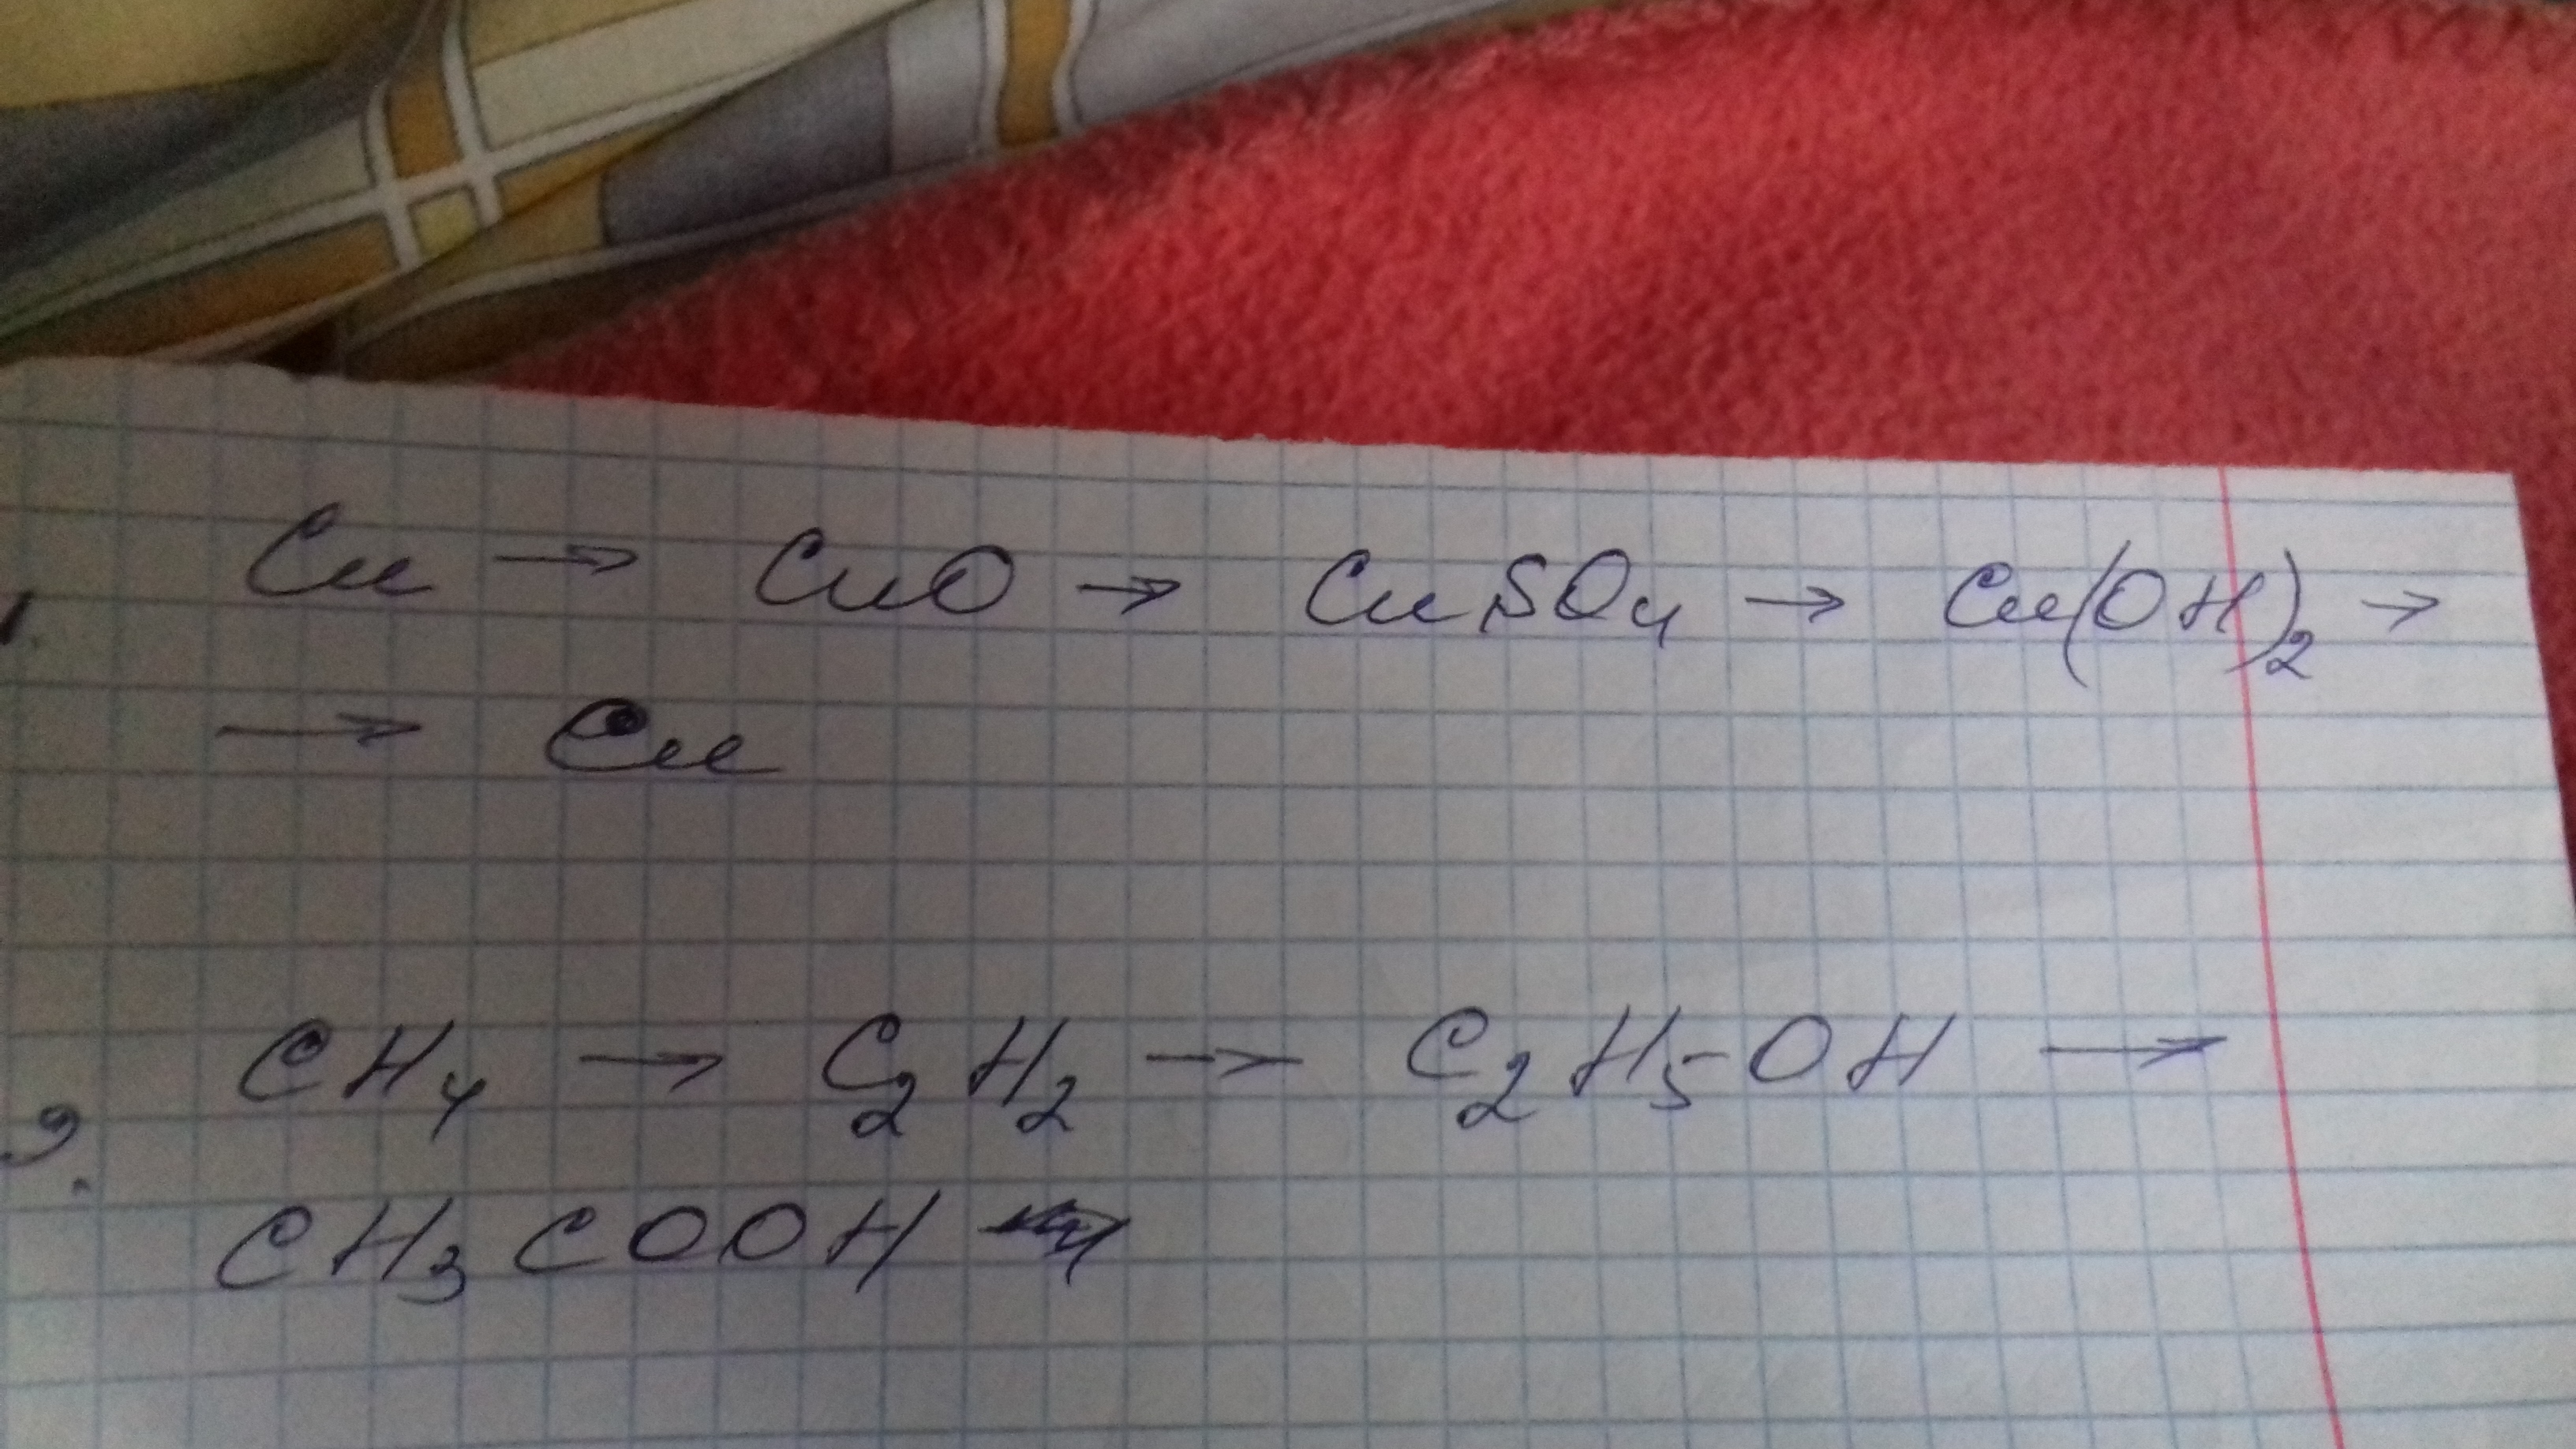 1. Cu → CuO → CuSO₄ → Cu(OH)₂ →
→ Cu
2. CH₄ → C₂H₂ → C₂H₅OH →
CH₃COOH